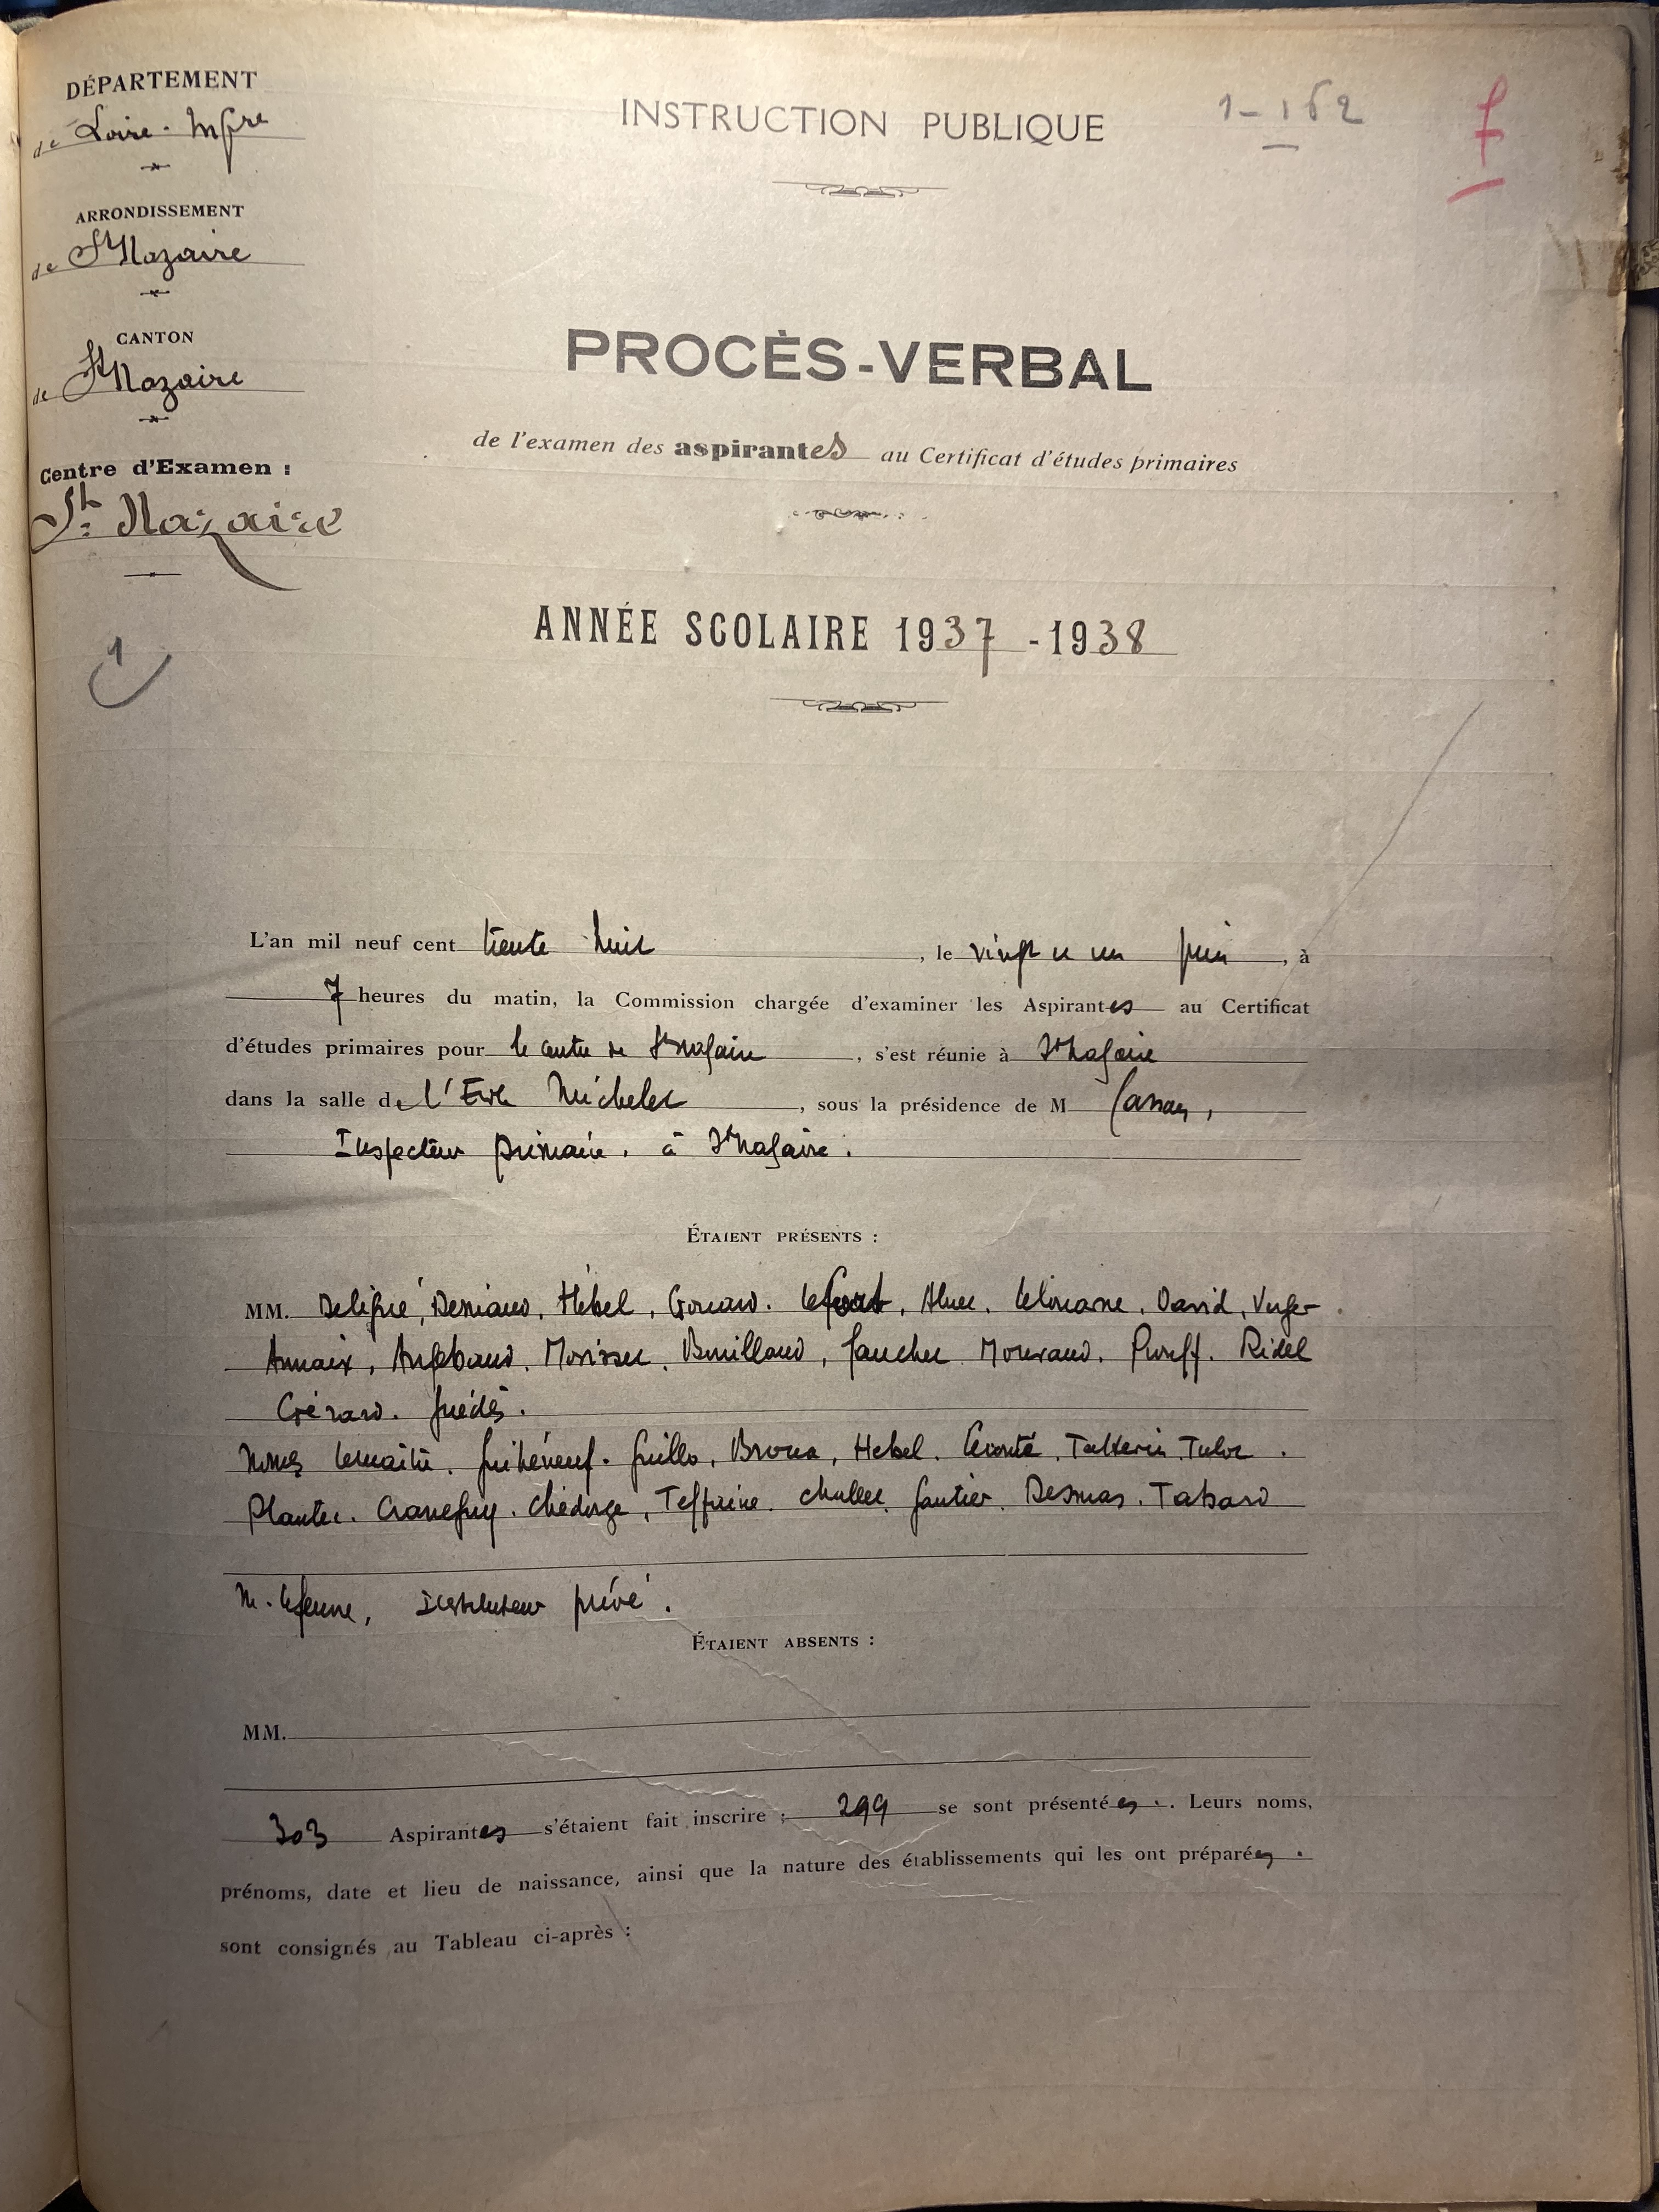 DÉPARTEMENT
de Loire-Infre
ARRONDISSEMENT
de St Nazaire
CANTON
de St Nazaire
Centre d'Examen :
St Nazaire
1
INSTRUCTION PUBLIQUE
1-162
f
PROCÈS-VERBAL
de l'examen des aspirantes au Certificat d'études primaires
ANNÉE SCOLAIRE 1937 -1938
L'an mil neuf cent trente huit, le vingt et un juin, à
7 heures du matin, la Commission chargée d'examiner les Aspirantes au Certificat
d'études primaires pour le centre de St Nazaire, s'est réunie à St Nazaire
dans la salle de l'Ecole Michelet, sous la présidence de M
Inspecteur primaire, à St Nazaire.
ÉTAIENT PRÉSENTS :
MM. Deligné, Hébel, David, Verger
Annaix, Angebaud, Bouillaud, Ridel
Gérard.
Mmes Lemaître, Guihéneuf, Guillo, Hebel, Leconte
Gautier, Desmas, Tabard
M. Lefeuvre, Instituteur privé.
ÉTAIENT ABSENTS :
MM.
303 Aspirantes s'étaient fait inscrire ; 299 se sont présentées. Leurs noms,
prénoms, date et lieu de naissance, ainsi que la nature des établissements qui les ont préparées
sont consignés au Tableau ci-après :